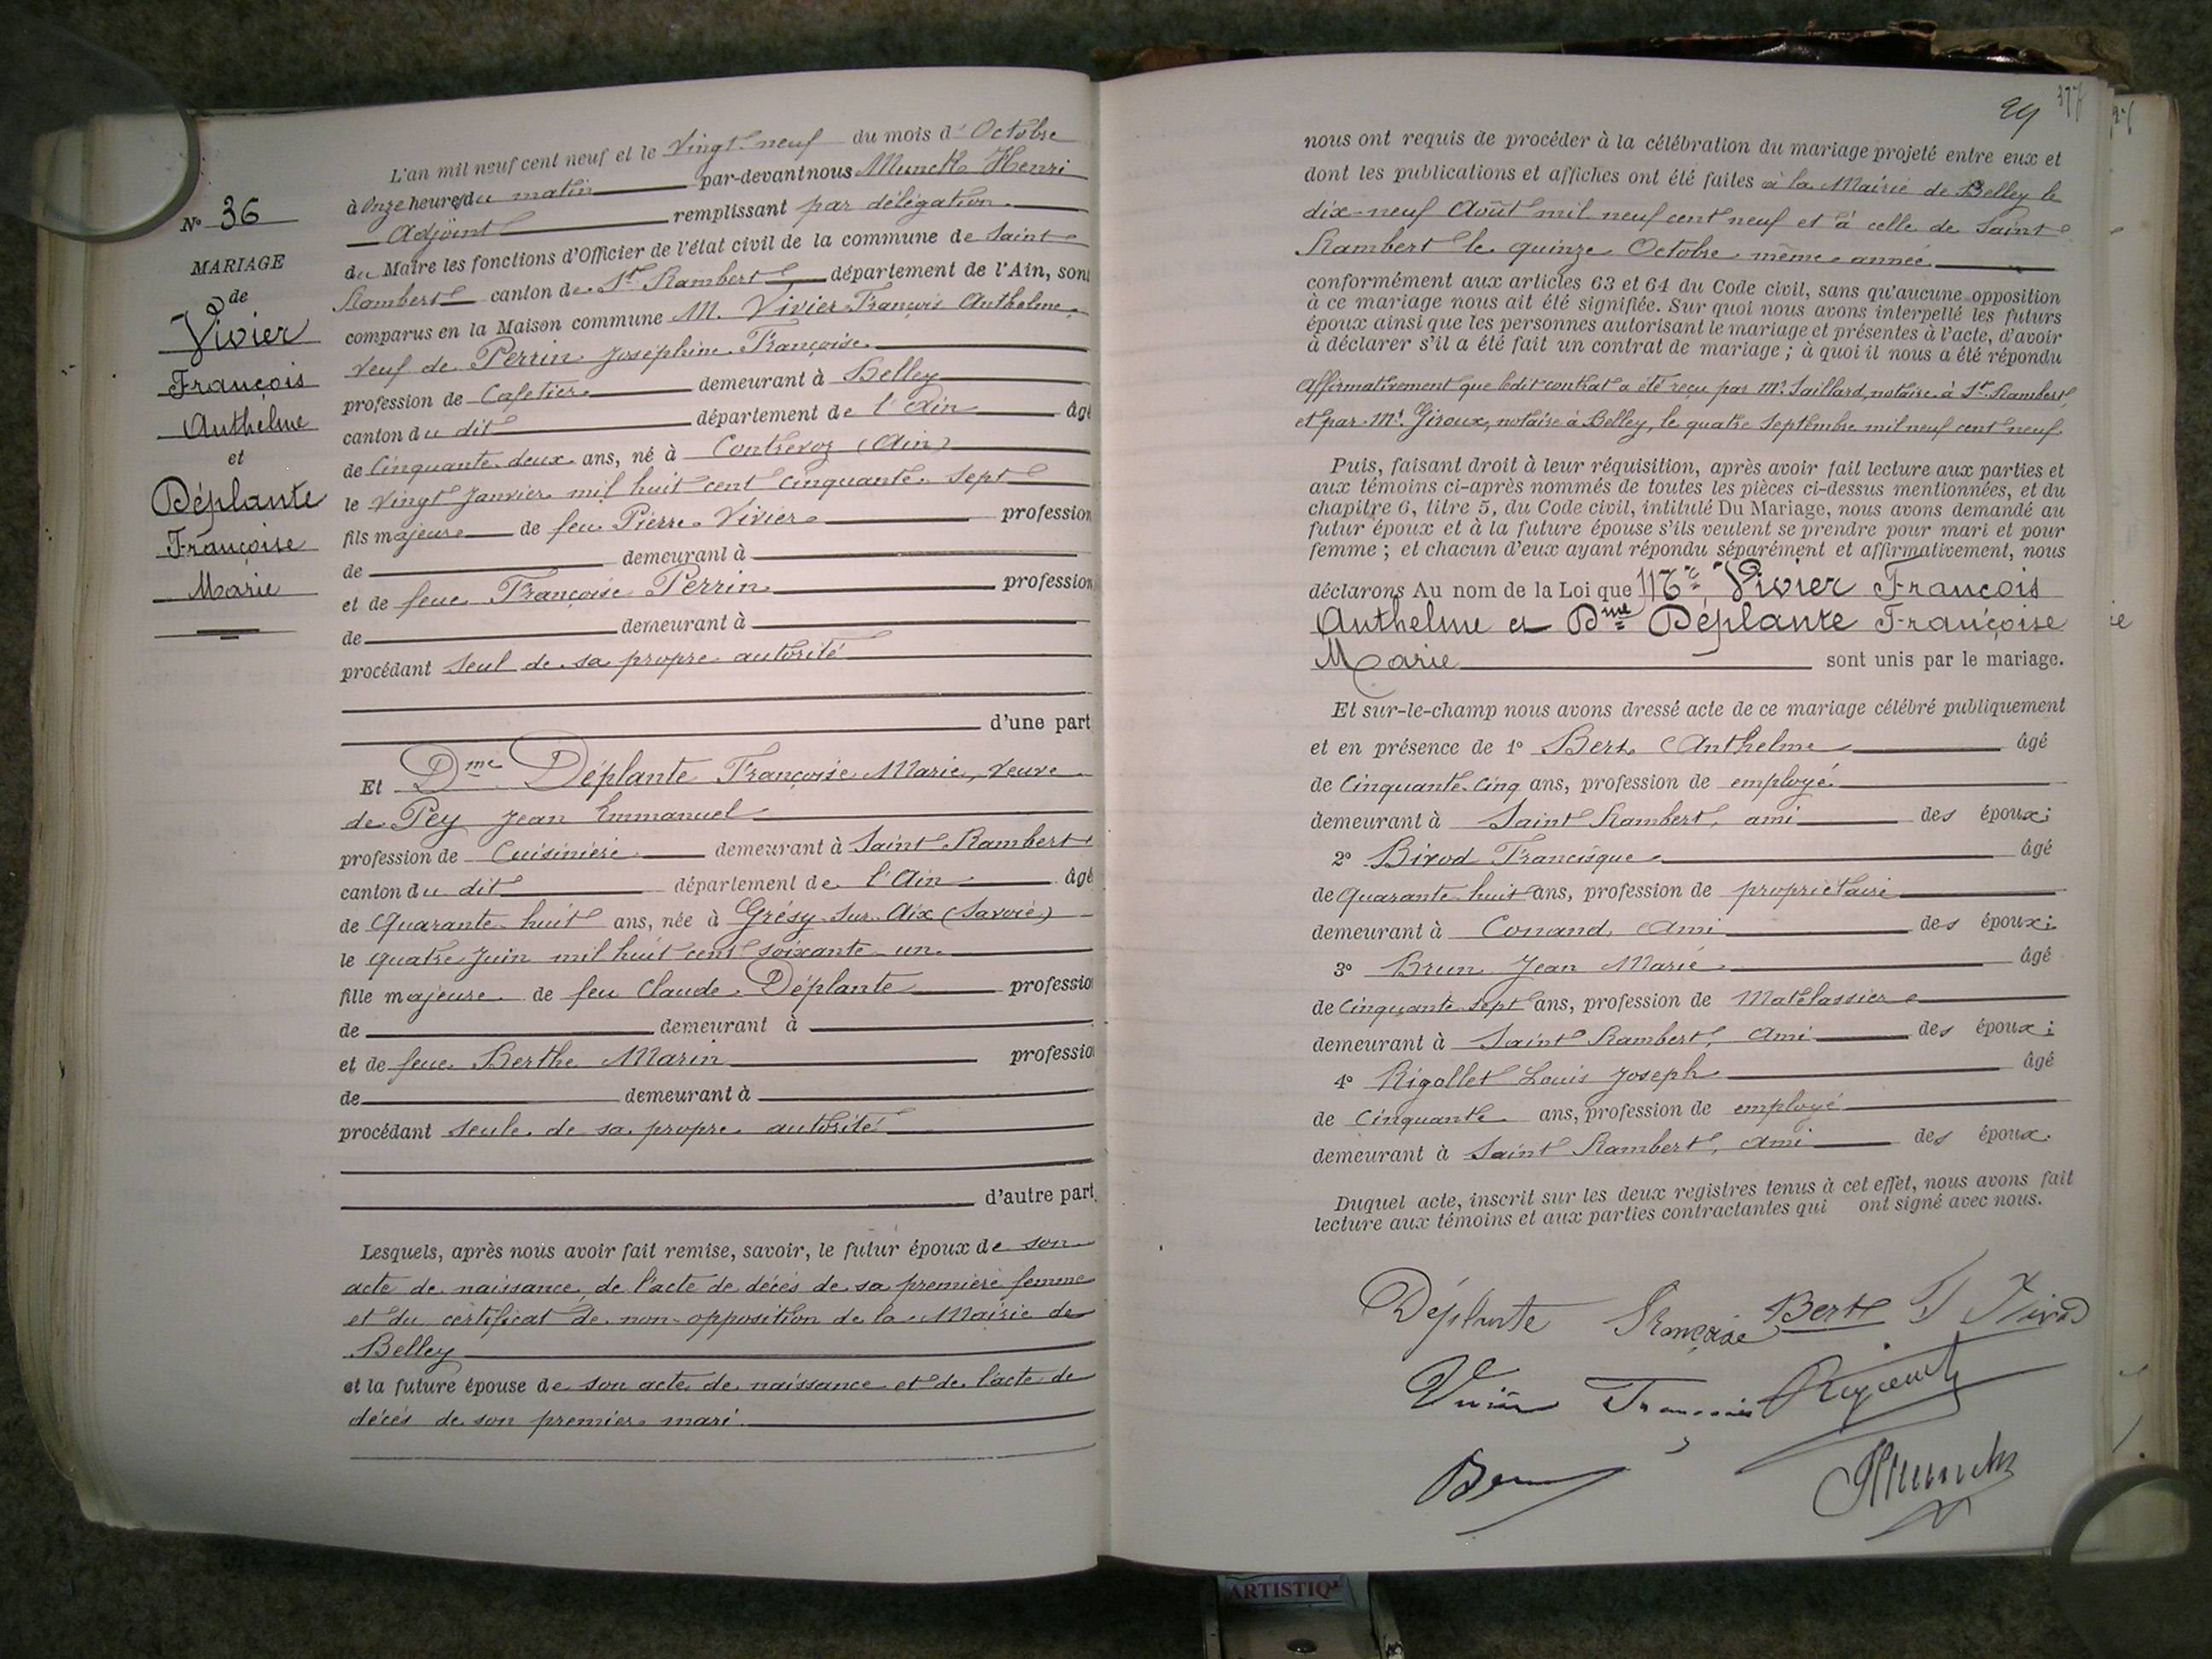 N° 36
MARIAGE
de
Vivier
François
Anthelme
et
Déplante
Françoise
Marie
L'an mil neuf cent neuf et le vingt-neuf du mois d'Octobre
à onze heures du matin par-devant nous Munck Henri
Adjoint remplissant par délégation
du Maire les fonctions d'Officier de l'état civil de la commune de Saint
Rambert canton de St Rambert département de l'Ain, sont
comparus en la Maison commune M. Vivier François Anthelme,
veuf de Perrin Joséphine Françoise
profession de Cafetier demeurant à Belley
canton du dit département de l'Ain âgé
de cinquante-deux ans, né à Contrevoz (Ain)
le vingt Janvier mil huit cent cinquante-sept
fils majeur de feu Pierre Vivier profession
de demeurant à
et de feue Françoise Perrin profession
de demeurant à
procédant seul de sa propre autorité
d'une part
Et Dme Déplante Françoise Marie, veuve
de Pey Jean Emmanuel
profession de Cuisinière demeurant à Saint Rambert
canton du dit département de l'Ain âgé
de quarante-huit ans, née à Grésy-sur-Aix (Savoie)
le quatre Juin mil huit cent soixante-un
fille majeure de feu Claude Déplante profession
de demeurant à
et de feue Berthe Marin profession
de demeurant à
procédant seule de sa propre autorité
d'autre part.
Lesquels, après nous avoir fait remise, savoir, le futur époux de son
acte de naissance, de l'acte de décès de sa première femme
et du certificat de non-opposition de la Mairie de
Belley
et la future épouse de son acte de naissance et de l'acte de
décès de son premier mari.
29 377
nous ont requis de procéder à la célébration du mariage projeté entre eux et
dont les publications et affiches ont été faites à la Mairie de Belley le
dix-neuf Août mil neuf cent neuf et à celle de Saint
Rambert le quinze Octobre même année
conformément aux articles 63 et 64 du Code civil, sans qu'aucune opposition
à ce mariage nous ait été signifiée. Sur quoi nous avons interpellé les futurs
époux ainsi que les personnes autorisant le mariage et présentes à l'acte, d'avoir
à déclarer s'il a été fait un contrat de mariage ; à quoi il nous a été répondu
affirmativement que ledit contrat a été reçu par Me Saillard, notaire à St Rambert,
et par Me Giroux, notaire à Belley, le quatre Septembre mil neuf cent neuf.
Puis, faisant droit à leur réquisition, après avoir fait lecture aux parties et
aux témoins ci-après nommés de toutes les pièces ci-dessus mentionnées, et du
chapitre 6, titre 5, du Code civil, intitulé Du Mariage, nous avons demandé au
futur époux et à la future épouse s'ils veulent se prendre pour mari et pour
femme ; et chacun d'eux ayant répondu séparément et affirmativement, nous
déclarons Au nom de la Loi que Mr Vivier François
Anthelme et Dme Déplante Françoise
Marie sont unis par le mariage.
Et sur-le-champ nous avons dressé acte de ce mariage célébré publiquement
et en présence de 1° Bert Anthelme âgé
de cinquante-cinq ans, profession de employé
demeurant à Saint Rambert, ami des époux;
2° Bivod Francisque âgé
de quarante huit ans, profession de propriétaire
demeurant à Conand, Ami des époux;
3° Brun Jean Marie âgé
de cinquante-sept ans, profession de Matelassier
demeurant à Saint Rambert, Ami des époux;
4° Rigollet Louis Joseph âgé
de cinquante ans, profession de employé
demeurant à Saint Rambert, ami des époux.
Duquel acte, inscrit sur les deux registres tenus à cet effet, nous avons fait
lecture aux témoins et aux parties contractantes qui ont signé avec nous.
Déplante Françoise Bert
Vivier François
Brun HMunck
ARTISTIQ